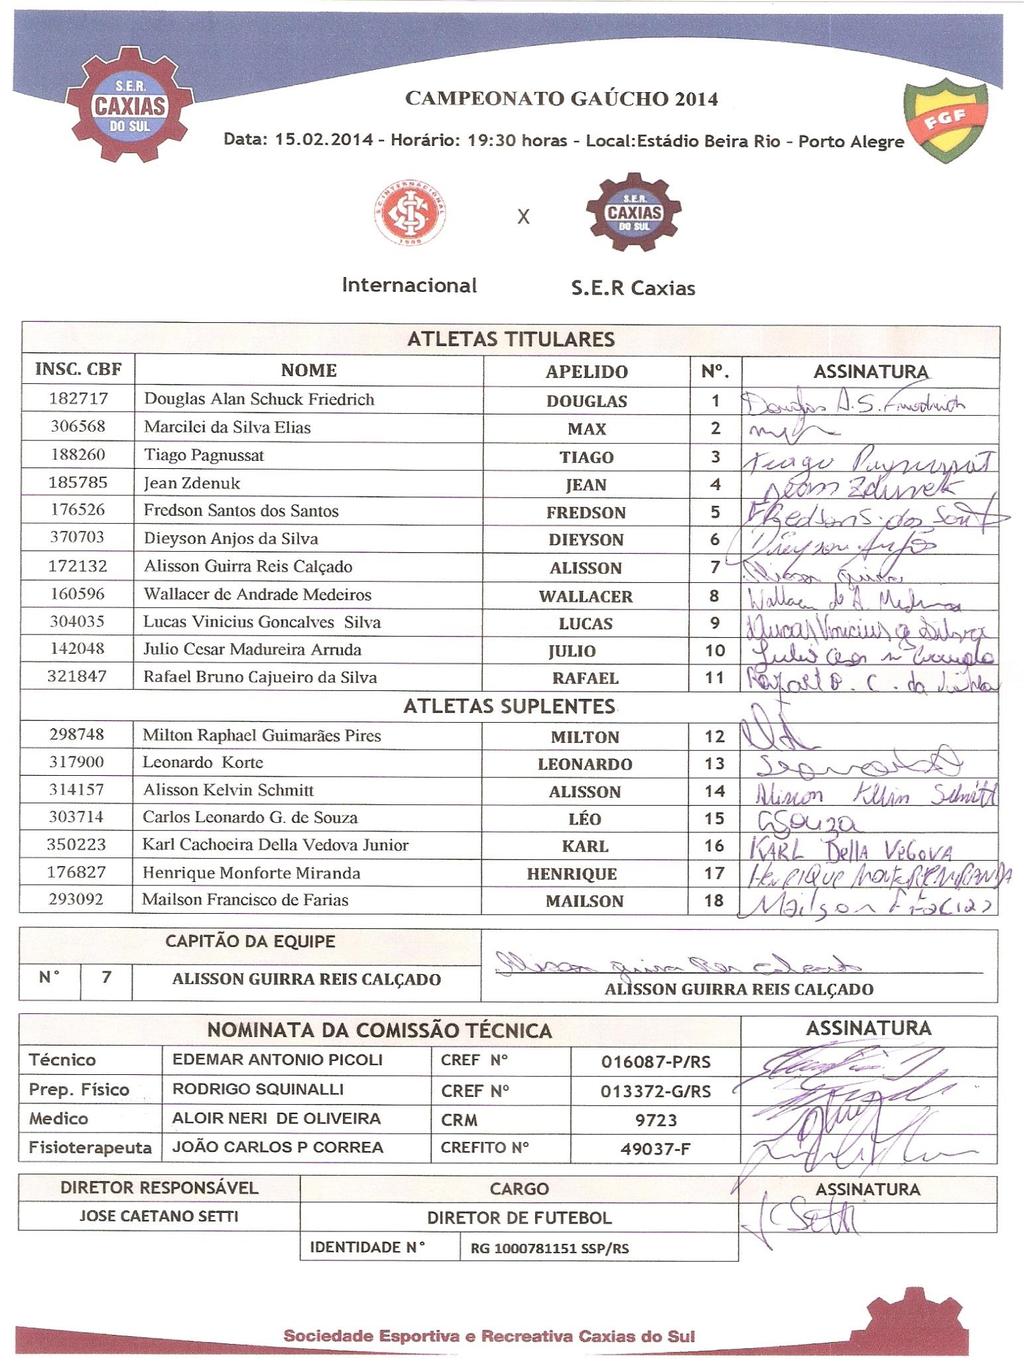 S.E.R.
CAXIAS
DO SUL
CAMPEONATO GAÚCHO 2014
FGF
Data: 15.02.2014 - Horário: 19:30 horas - Local:Estádio Beira Rio - Porto Alegre
S.C. INTERNACIONAL
1909
X
S.E.R.
CAXIAS
DO SUL
Internacional S.E.R Caxias
ATLETAS TITULARES
INSC. CBF NOME APELIDO Nº. ASSINATURA
182717 Douglas Alan Schuck Friedrich DOUGLAS 1 Douglas A. S. Friedrich
306568 Marcilei da Silva Elias MAX 2
188260 Tiago Pagnussat TIAGO 3 Tiago Pagnussat
185785 Jean Zdenuk JEAN 4 Jean Zdunek
176526 Fredson Santos dos Santos FREDSON 5 Fredson S. dos Sant
370703 Dieyson Anjos da Silva DIEYSON 6 Dieyson Anjos
172132 Alisson Guirra Reis Calçado ALISSON 7 Alisson Guirra
160596 Wallacer de Andrade Medeiros WALLACER 8 Wallacer de A. Medeiros
304035 Lucas Vinicius Goncalves Silva LUCAS 9 Lucas Vinicius g Silva
142048 Julio Cesar Madureira Arruda JULIO 10 Julio Cesar m Arruda
321847 Rafael Bruno Cajueiro da Silva RAFAEL 11 Rafael B. C. da Silva
ATLETAS SUPLENTES
298748 Milton Raphael Guimarães Pires MILTON 12
317900 Leonardo Korte LEONARDO 13 Leonardo
314157 Alisson Kelvin Schmitt ALISSON 14 Alisson Kelvin Schmitt
303714 Carlos Leonardo G. de Souza LÉO 15 GSouza
350223 Karl Cachoeira Della Vedova Junior KARL 16 KARL Della VeGOVA
176827 Henrique Monforte Miranda HENRIQUE 17 Henrique Monforte Miranda
293092 Mailson Francisco de Farias MAILSON 18 Mailson Farias
CAPITÃO DA EQUIPE
Alisson guirra Reis calcado
N° 7 ALISSON GUIRRA REIS CALÇADO
ALISSON GUIRRA REIS CALÇADO
NOMINATA DA COMISSÃO TÉCNICA ASSINATURA
Técnico EDEMAR ANTONIO PICOLI CREF Nº 016087-P/RS
Prep. Físico RODRIGO SQUINALLI CREF Nº 013372-G/RS
Medico ALOIR NERI DE OLIVEIRA CRM 9723
Fisioterapeuta JOÃO CARLOS P CORREA CREFITO N° 49037-F
DIRETOR RESPONSÁVEL CARGO ASSINATURA
JOSE CAETANO SETTI DIRETOR DE FUTEBOL JC Setti
IDENTIDADE N° RG 1000781151 SSP/RS
Sociedade Esportiva e Recreativa Caxias do Sul